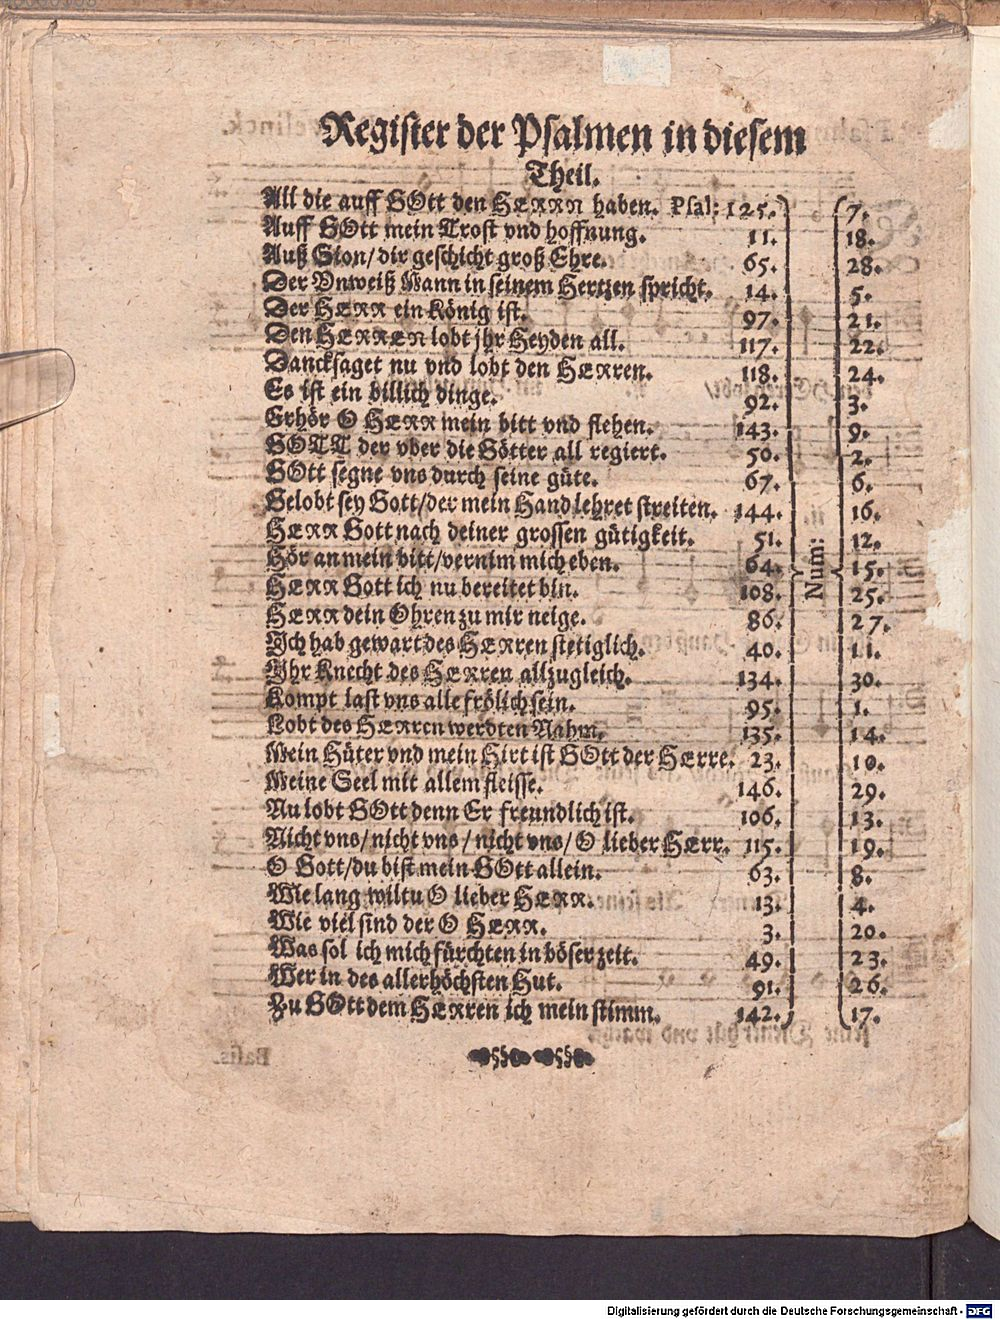 Register der Psalmen in diesem
Theil.
All die auff GOtt den HERRN haben. Psal: 125. 7.
Auff GOtt mein Trost vnd hoffnung. 11. 18.
Auß Sion/ dir geschicht groß Ehre. 65. 28.
Der Vnweiß Mann in seinem Hertzen spricht. 14. 5.
Der HERR ein König ist. 97. 21.
Den HERREN lobt jhr Heyden all. 117. 22.
Dancksaget nu vnd lobt den HErren. 118. 24.
Es ist ein billich dinge. 92. 3.
Erhör O HERR mein bitt vnd flehen. 143. 9.
GOTT der vber die Götter all regiert. 50. 2.
GOtt segne vns durch seine güte. 67. 6.
Gelobt sey Gott/der mein Hand lehret streiten. 144. 16.
HERR Gott nach deiner grossen gütigkeit. 51. 12.
Hör an mein bitt/vernim mich eben. 64. Num: 15.
HERR Gott ich nu bereitet bin. 108. 25.
HERR dein Ohren zu mir neige. 86. 27.
Ich hab gewart des HErren stetiglich. 40. 11.
Ihr Knecht des HErren allzugleich. 134. 30.
Kompt last vns alle frölich sein. 95. 1.
Lobt des HErren werdten Nahm. 135. 14.
Mein Hüter vnd mein Hirt ist GOtt der HErre. 23. 10.
Meine Seel mit allem fleisse. 146. 29.
Nu lobt GOtt denn Er freundlich ist. 106. 13.
Nicht vns/ nicht vns/ nicht vns/ O lieber HErr. 115. 19.
O Gott/du bist mein GOtt allein. 63. 8.
Wie lang wiltu O lieber HERR. 13. 4.
Wie viel sind der O HERR. 3. 20.
Was sol ich mich fürchten in böser zeit. 49. 23.
Wer in des allerhöchsten Hut. 91. 26.
Zu GOtt dem HErren ich mein stimm. 142. 17.
Digitalisierung gefördert durch die Deutsche Forschungsgemeinschaft - DFG